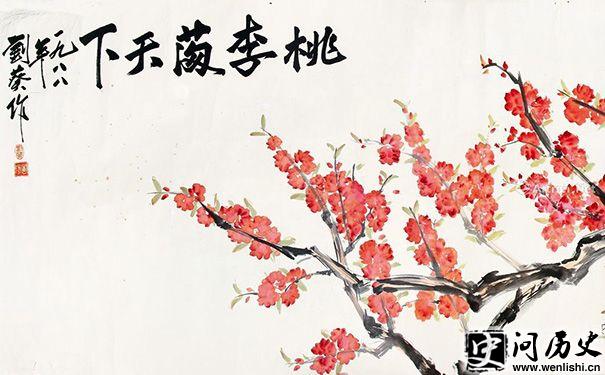 桃李滿天下
一九八八
年
劉葵作
史 问历史
www.wenlishi.cn